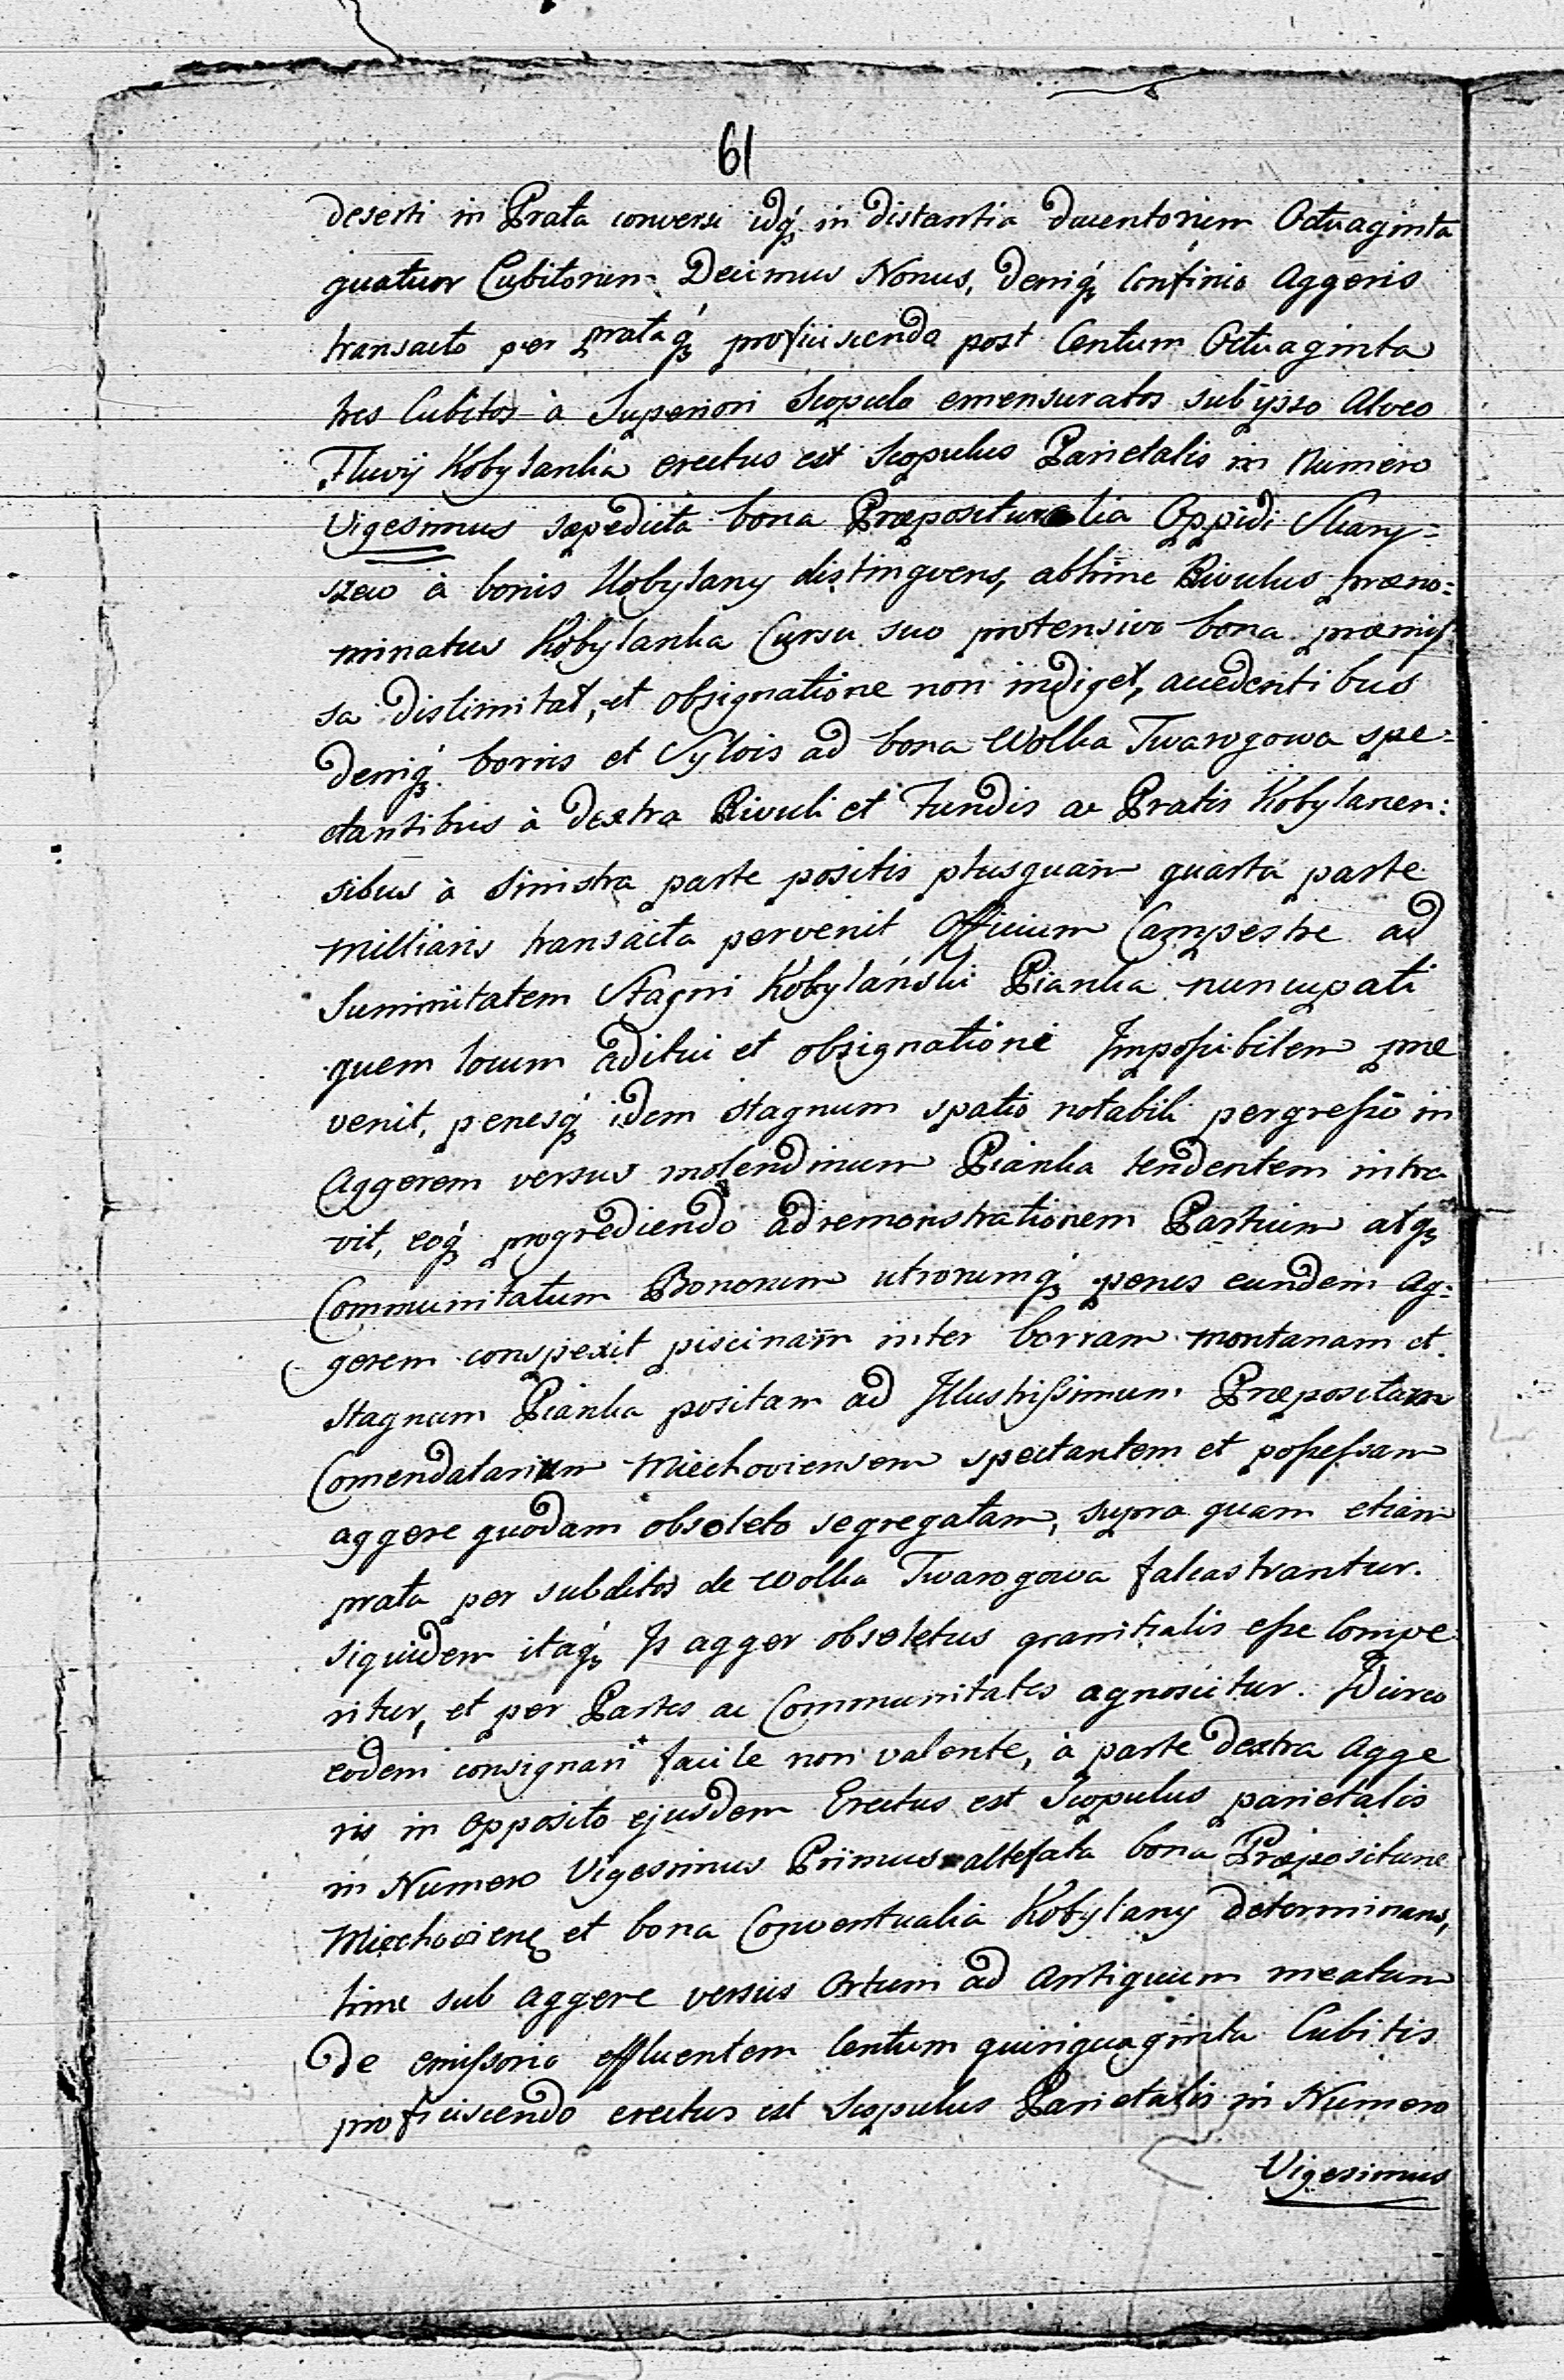 61
deserti in Prata conversi idq́ in distantia ducentorum Octuaginta
quatuor Cubitorum Decimus Nonus, deniq́ Confinio Aggeris
transacto per prataq́ proficiscendo post Centum Octuaginta
tres Cubitos à Superiori Scopulo emensuratos sub ipso Alveo
Fluvij Kobylanka erectus est Scopulus Parietalis in Numero
Vigesimus sæpedicta bona Præposituralia Oppidi Skary=
szew à bonis Kobylany distinguens, abhinc Rivulus præno:
minatus Kobylanka Cursu suo protensivo bona præmis
sa dislimitat, et obsignatione non indiget, accedentibus
deniq́ borris et Sylvis ad bona Wolka Twarogowa spe:
ctantibus à dextra Rivuli et Fundis ac Pratis Kobylanen:
sibus à Sinistra parte positis plusquam quarta parte
milliaris transacta pervenit Officium Campestre ad
Summitatem Stagni Kobylański Pianka nuncupati
quem locum aditui et obsignationi Impossibilem præ
venit, penesq́ idem stagnum spatio notabili pergressō in
Aggerem versus molendinum Pianka tendentem intra
vit, eoq́ progrediendo ad remonstrationem Partium atq́
Communitatum Bonorum utrorumq́ penes eundem Ag:
gerem conspexit piscinam inter borram montanam et
Stagnum Pianka positam ad Illustrissimum Præpositum
Comendatarium Miechoviensem spectantem et possessam
aggere quodam obsoleto segregatam, supra quam etiam
prata per subditos de Wolka Twarogowa falcastrantur.
siquidem itaq́ Is agger obsoletus granitialis esse compe
ritur, et per Partes ac Communitates agnoscitur. Idcirco
eodem consignari facile non valente, à parte dextra Agge
ris in opposito ejusdem Erectus est Scopulus parietalis
in Numero Vigesimus Primus altefata bona Præpositure
Miechovienę et bona Conventualia Kobylany determinans,
hinc sub aggere versus Ortum ad Antiquum meatum
de emissorio effluentem Centum quinquaginta Cubitis
proficiscendo erectus est Scopulus Parietalis in Numero
Vigesimus